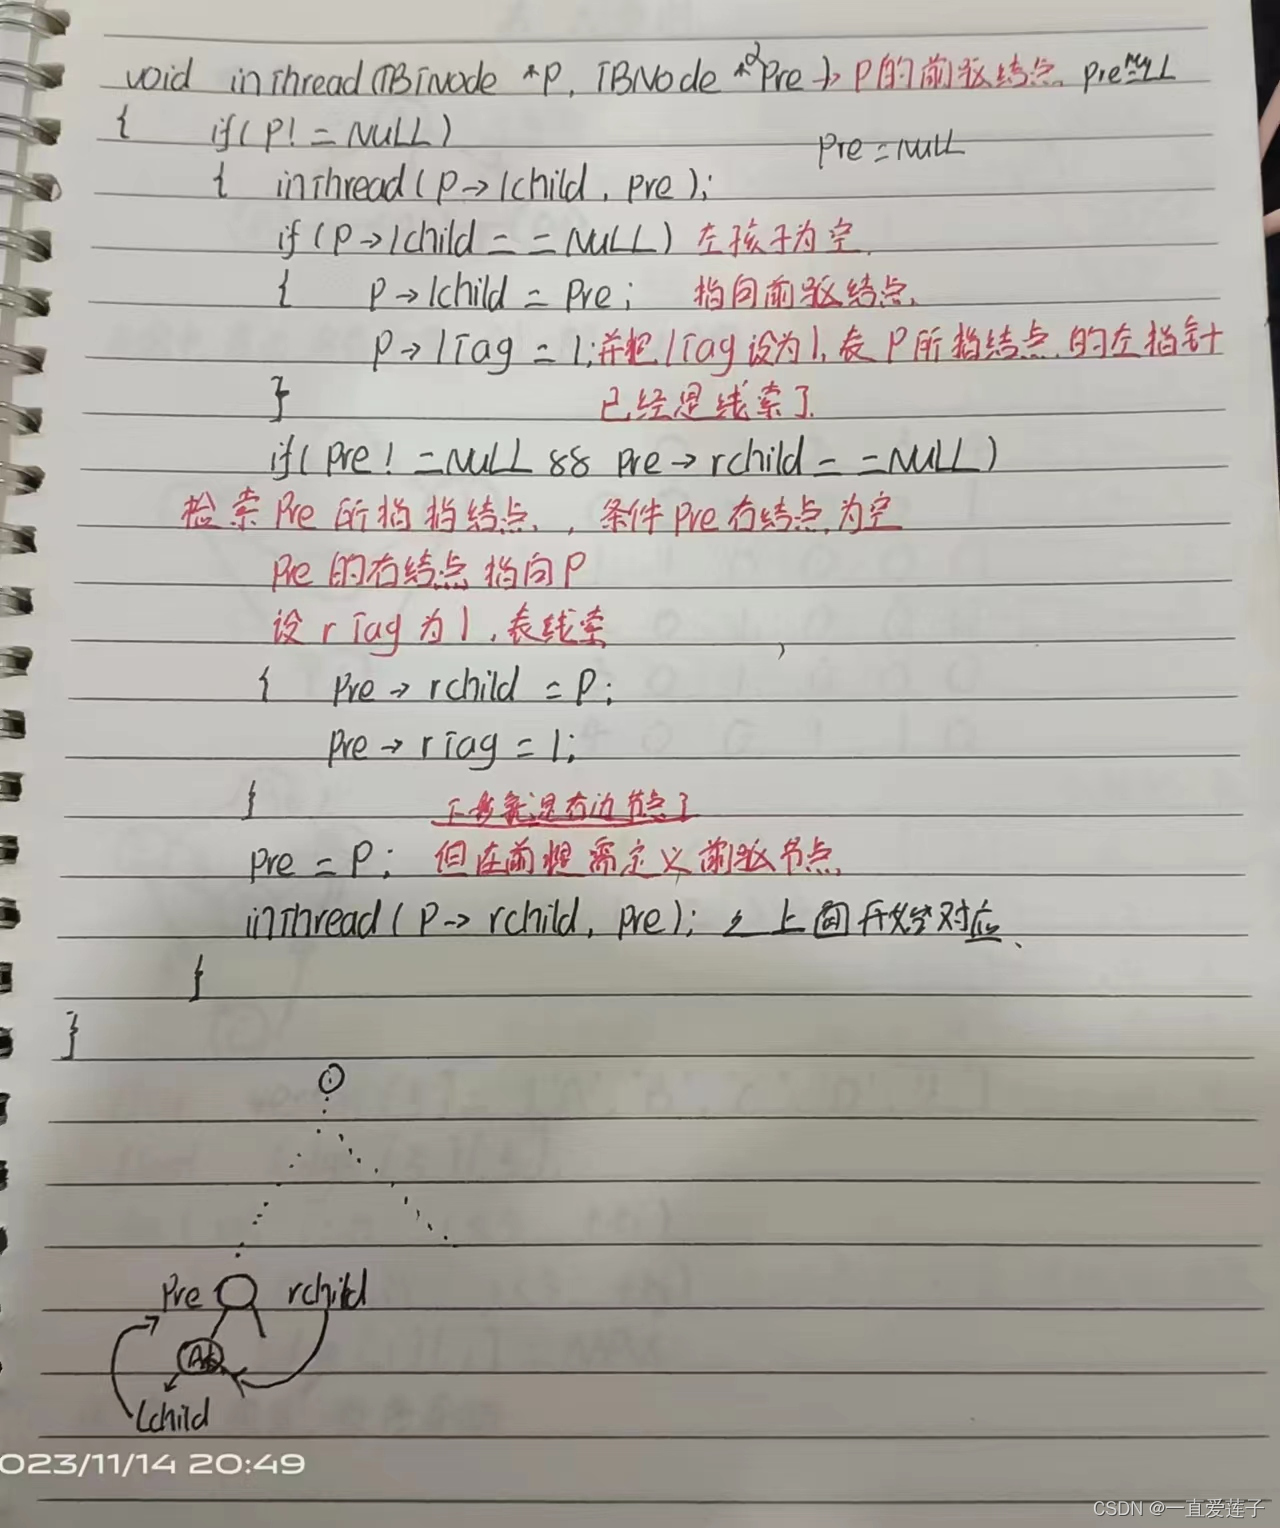 void inThread(TBTNode *P, TBNode *&Pre) P的前驱结点 pre=NULL
{ if(P!=NULL)
Pre=NULL
{ inThread(P→lchild, pre);
if(P→lchild==NULL) 左孩子为空
{ P→lchild=Pre; 指向前驱结点
P→lTag=1; 并把lTag设为1,表P所指结点的左指针
} 已经是线索了
if(Pre!=NULL && pre→rchild==NULL)
检索Pre所指指结点, 条件Pre右结点为空
Pre的右结点指向P
设rTag为1,表线索
{ Pre→rchild=P;
Pre→rTag=1;
} 下步就是右边节点了
Pre=P; 但在前提需定义前驱节点
inThread(P→rchild, pre); 上面开始对应
}
}
Pre rchild
lchild
023/11/14 20:49
CSDN @一直爱莲子